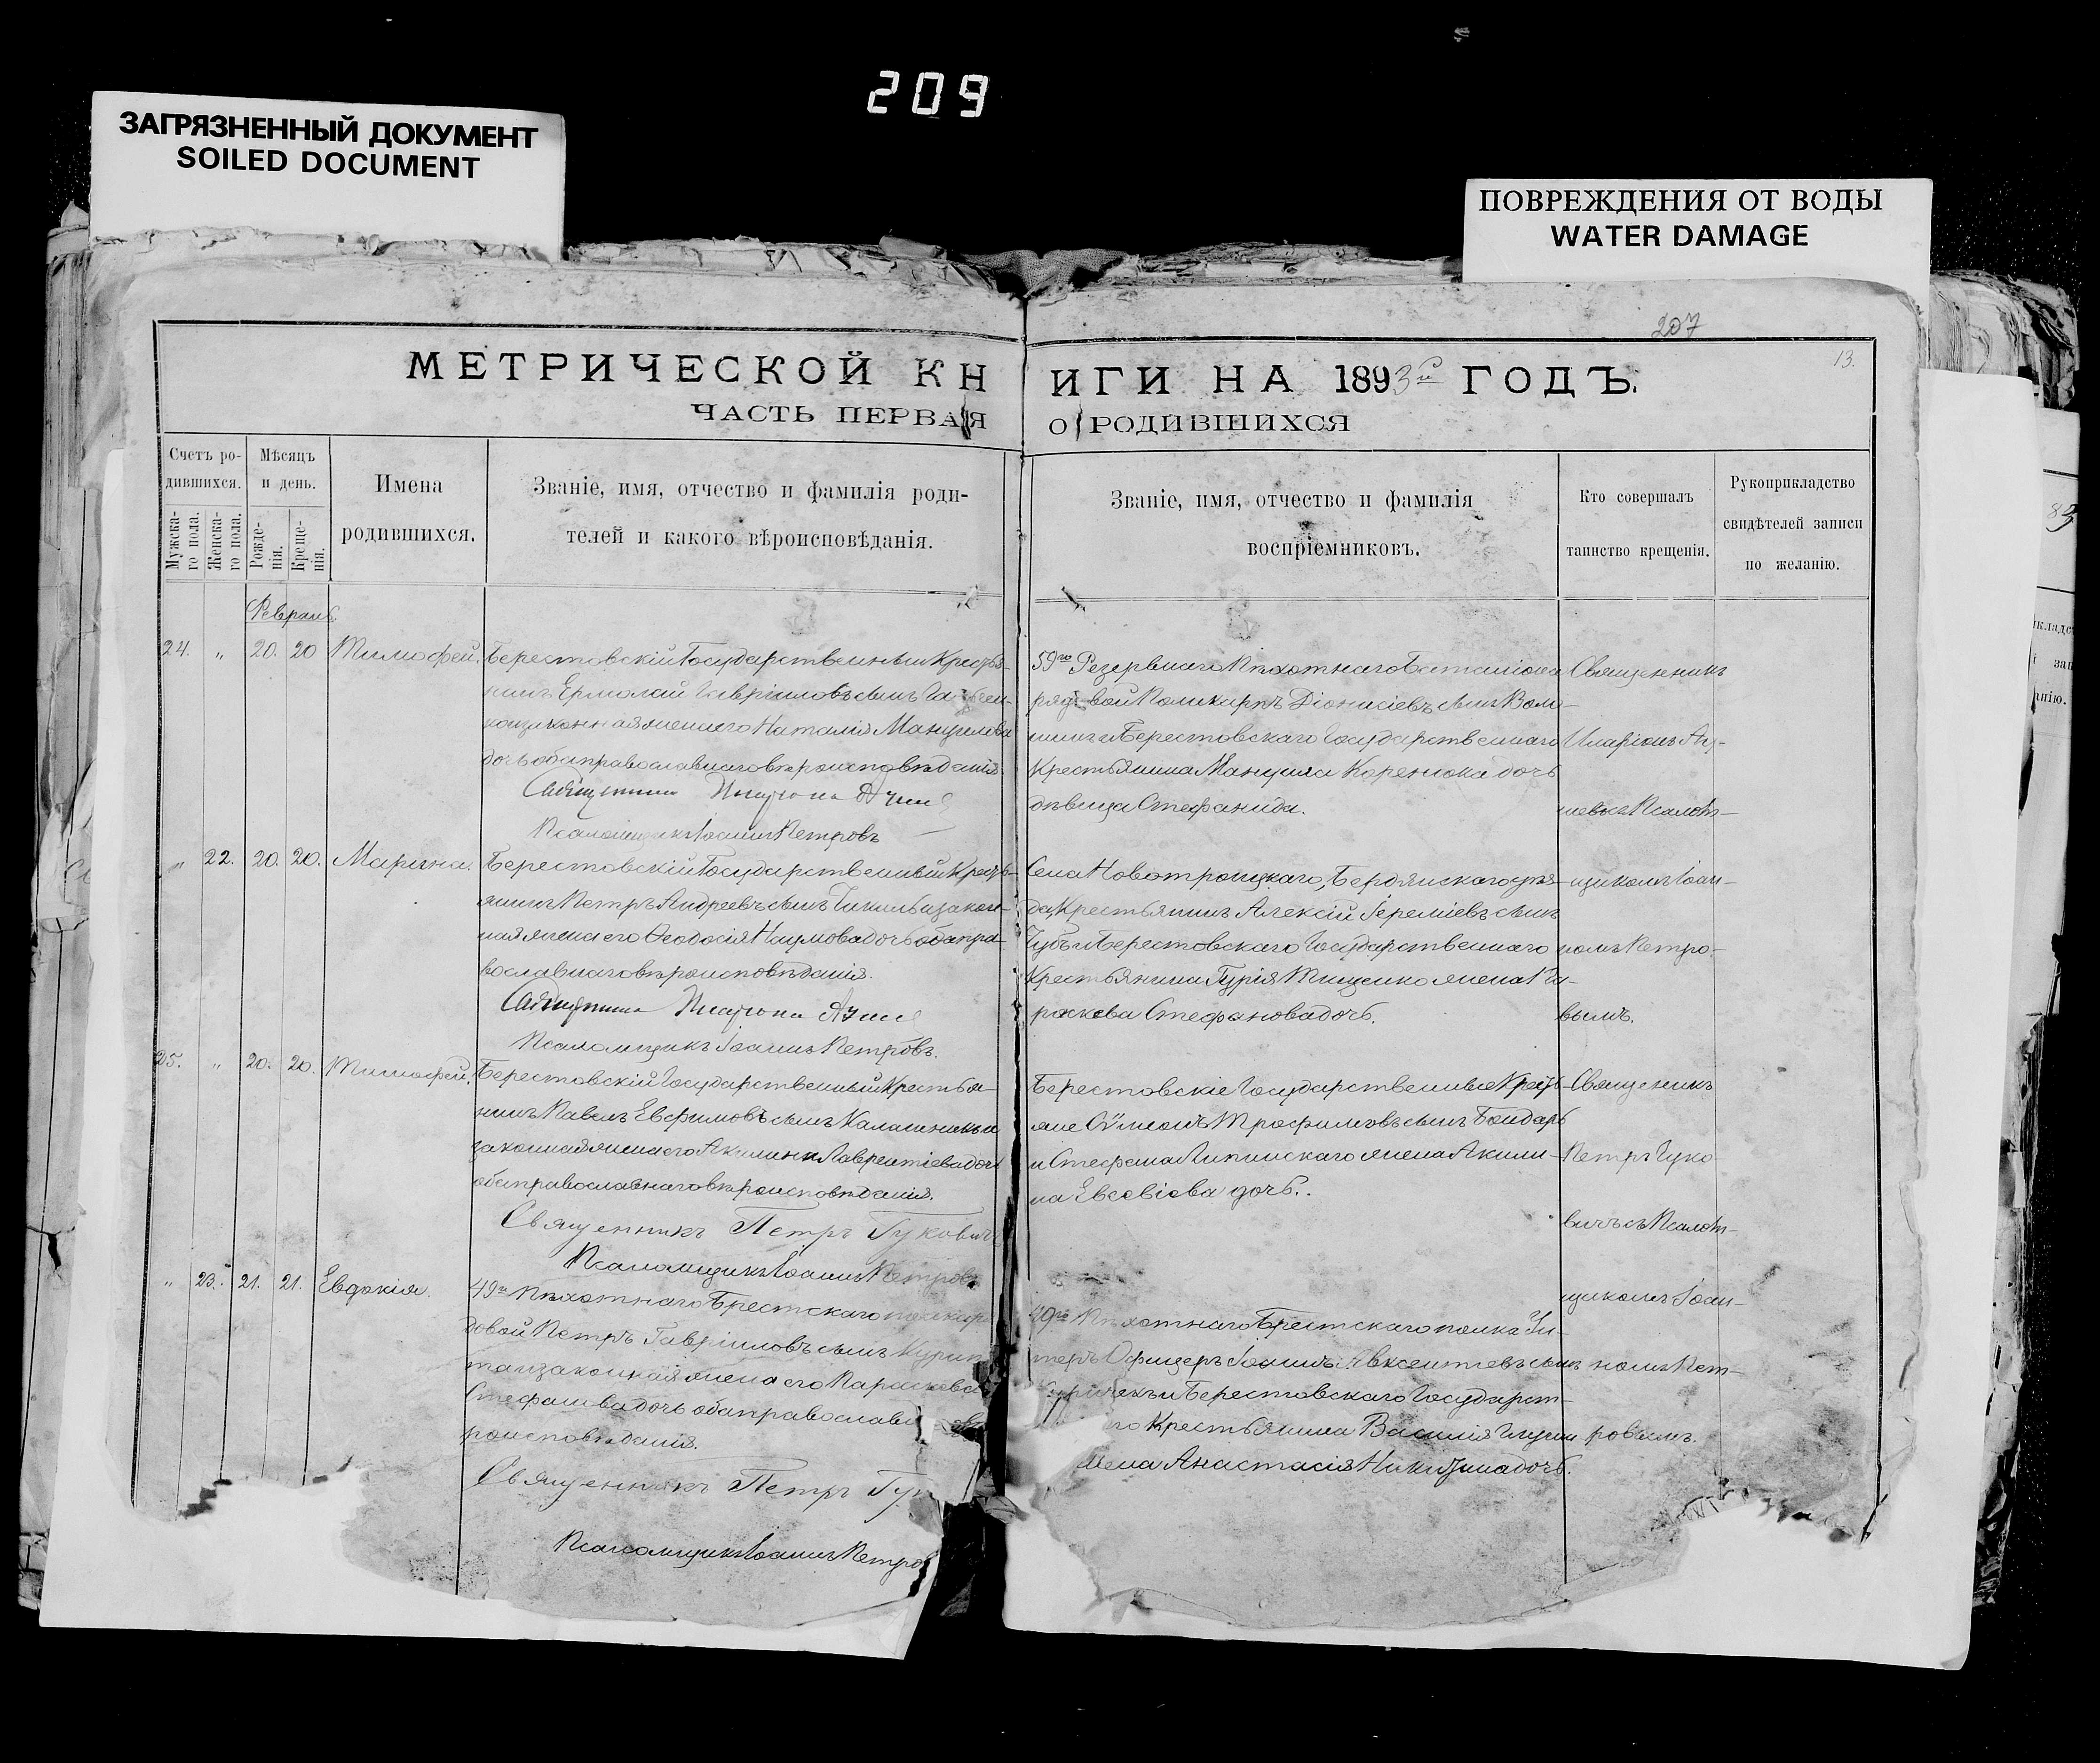 209
ЗАГРЯЗНЕННЫЙ ДОКУМЕНТ
SOILED DOCUMENT
ПОВРЕЖДЕНИЯ ОТ ВОДЫ
WATER DAMAGE
207
13.
МЕТРИЧЕСКОЙ КН
ИГИ НА 1893й ГОДЪ.
ЧАСТЬ ПЕРВАЯ
О РОДИВШИХСЯ
Счетъ ро-
дившихся.
Мужска-
го пола.
Женска-
го пола.
Мѣсяцъ
и день.
Рожде-
нія.
Креще-
нія.
Имена
родившихся.
Званіе, имя, отчество и фамилія роди-
телей и какого вѣроисповѣданія.
Званіе, имя, отчество и фамилія
воспріемниковъ.
Кто совершалъ
таинство крещенія.
Рукоприкладство
свидѣтелей записи
по желанію.
Февраль
24. " 20. 20 Тимофей.
Берестовскій Государственный Крестья-
нинъ Ермолай Гавріиловъ сынъ
законная жена его Наталія Мануилова
дочь оба православнаго вѣроисповѣданія.
Священникъ
Псаломщикъ Іоаннъ Петровъ
59го Резервнаго Пѣхотнаго Баталіона
рядовой Поликарпъ Діонисіевъ сынъ
и Берестовскаго Государственнаго
Крестьянина Мануила Коренюка дочь
дѣвица Стефанида.
Священникъ
Иларіонъ
Псалом-
" 22. 20. 20. Марина.
Берестовскій Государственный Кресть-
янинъ Петръ Андреевъ сынъ закон-
ная жена его Ѳеодосія Наумова дочь оба пра-
вославнаго вѣроисповѣданія.
Священникъ
Псаломщикъ Іоаннъ Петровъ.
Села Новотроицкаго, Бердянскаго уѣз-
да, Крестьянинъ Алексій Іереміевъ сынъ
Чубъ и Берестовскаго Государственнаго
Крестьянина Гурія Тищенко жена Па-
раскева Стефанова дочь.
щикомъ Іоан-
номъ Петро-
вымъ.
25. " 20. 20. Тимофей.
Берестовскій Государственный Крестья-
нинъ Павелъ Евфимовъ сынъ Калашникъ и
законная жена его Акилина Лаврентіева дочь
оба православнаго вѣроисповѣданія.
Священникъ Петръ Гукович
Псаломщикъ Іоаннъ Петровъ
Берестовскіе Государственные Кресть-
яне Сѵмеонъ Трофимовъ сынъ Бондарь
и Стефана Липинскаго жена Акили-
на Евсевіева дочь.
Священникъ
Петръ Гуко-
вичъ съ Псалом-
" 23. 21. 21. Евдокія.
49го Пѣхотнаго Брестскаго полка ря
довой Петръ Гавріиловъ сынъ
законная жена его Параскева
Стефанова дочь оба православн
роисповѣданія.
Священникъ Петръ Гу
Псаломщикъ Іоаннъ Петров
49го Пѣхотнаго Брестскаго полка Ун-
теръ Офицеръ Іоаннъ Авксентіевъ сынъ
и Берестовскаго Государст-
го Крестьянина Василія
жена Анастасія Никитина дочь.
щикомъ Іоан-
номъ Пет-
ровымъ.